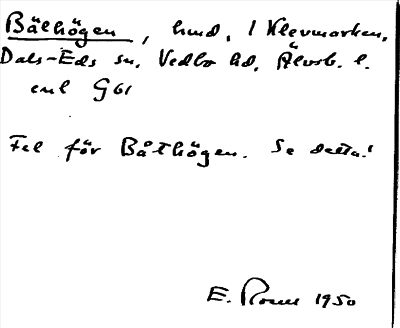 Bälhögen, hmd, i Klevmarken,
Dals-Eds sn, Vedbo hd, Älvsb. l.
enl G61
Fel för Båthögen. Se detta!
E. Rosell 1950